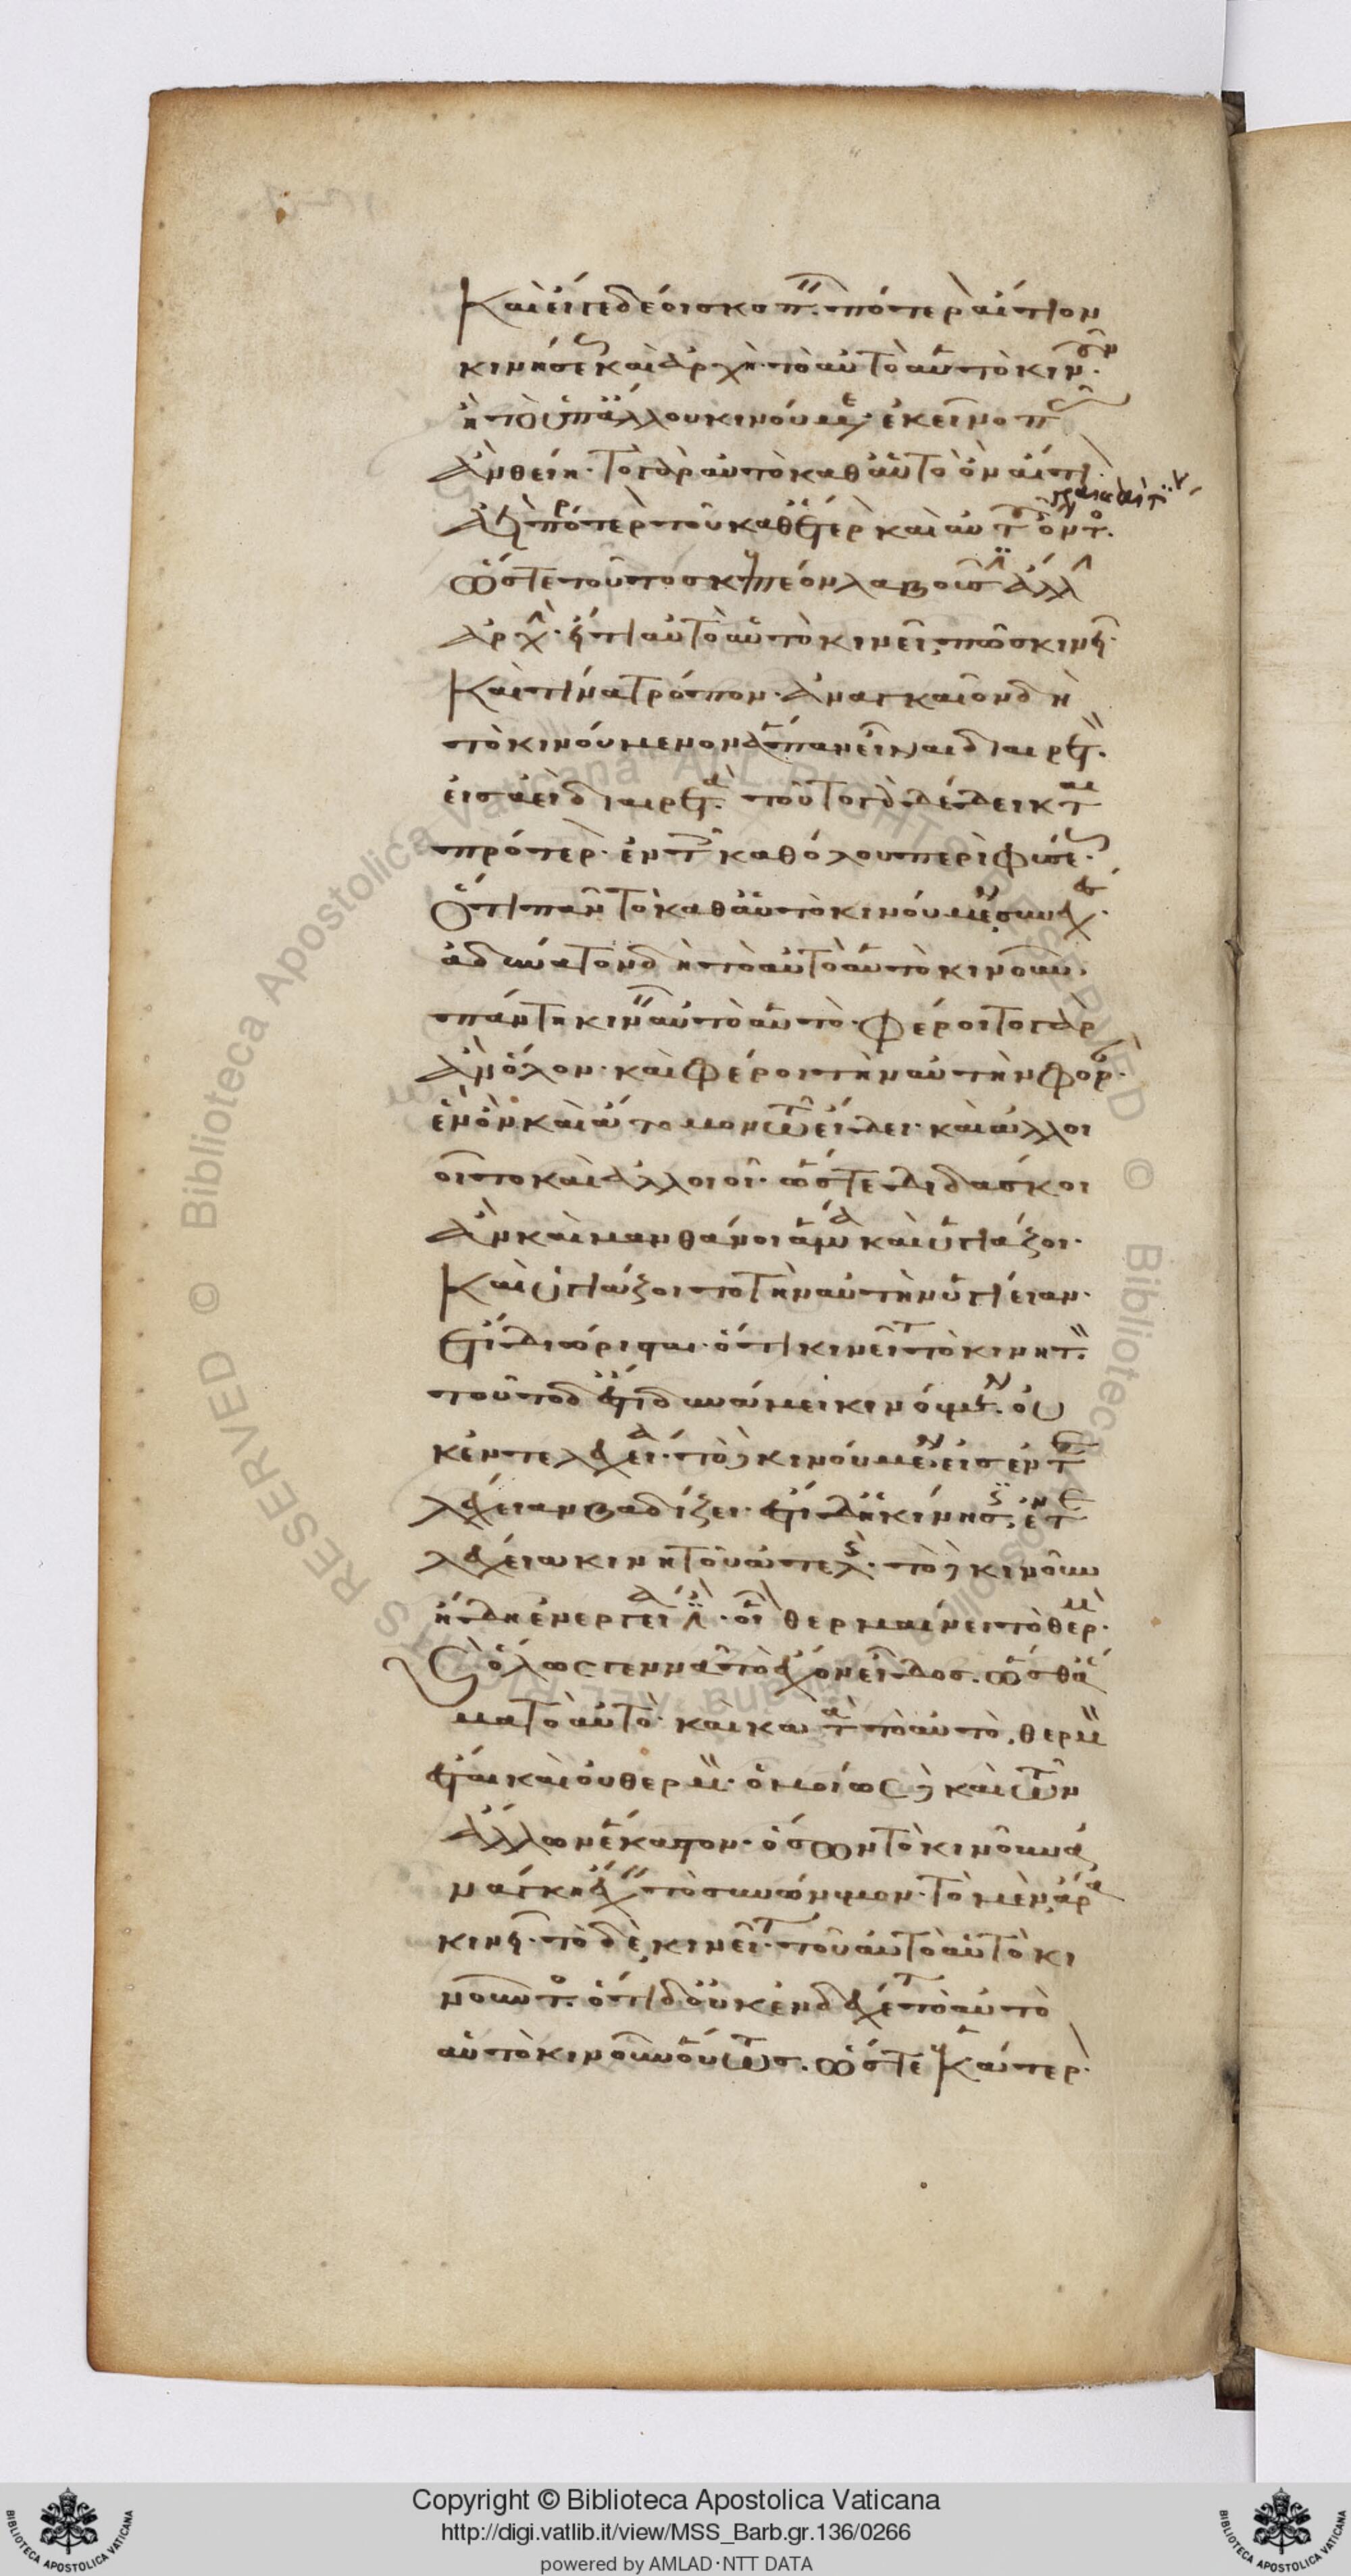 Καὶ εἴπερ δέοι σκοπεῖν πότερον αἴτιον
κινήσεως καὶ ἀρχὴ τὸ αὐτὸ αὑτὸ κινοῦν·
ἢ τὸ ὑπ' ἄλλου κινούμενον· ἐκεῖνο πᾶς
ἂν θείη· τὸ γὰρ αὐτὸ καθ' αὑτὸ ὂν αἴτιον
ἀεὶ πρότερον τοῦ καθ' ἕτερον καὶ αὐτοῦ ὄντος.
ὥστε τοῦτο σκεπτέον λαβοῦσιν ἄλλην
ἀρχήν· εἴ τι αὐτὸ αὑτὸ κινεῖ, πῶς κινεῖ·
Καὶ τίνα τρόπον· ἀναγκαῖον δὴ
τὸ κινούμενον ἅπαν εἶναι διαιρετόν.
εἰς ἀεὶ διαιρετά· τοῦτο γὰρ δέδεικται
πρότερον· ἐν τοῖς καθόλου περὶ φύσεως.
Ὅτι πᾶν τὸ καθ' αὑτὸ κινούμενον συνεχές·
ἀδύνατον δὴ τὸ αὐτὸ αὑτὸ κινοῦν.
πάντη κινεῖν αὐτὸ αὑτό· φέροιτο γὰρ
ἂν ὅλον· καὶ φέροι τὴν αὐτὴν φοράν·
ἓν ὂν καὶ ἄτομον τῷ εἴδει· καὶ ἀλλοι
οῖτο καὶ ἀλλοιοῖ· ὥστε διδάσκοι
ἂν καὶ μανθάνοι ἅμα καὶ ὑγιάζοι·
Καὶ ὑγιάζοιτο τὴν αὐτὴν ὑγίειαν·
ἔτι διώρισται ὅτι κινεῖται τὸ κινητόν.
τοῦτο δ' ἐστὶ δυνάμει κινούμενον. οὐ
κ ἐντελεχείᾳ· τὸ δὲ κινούμενον εἰς ἐντε
λέχειαν βαδίζει· ἔστι δ' ἡ κίνησις ἐντε
λέχεια κινητοῦ ἀτελής· τὸ δὲ κινοῦν
ἤδη ἐνεργείᾳ ἐστίν· οἷον θερμαίνει τὸ θερμόν·
καὶ ὅλως γεννᾷ τὸ ἔχον εἶδος. ὥσθ' ἅ
μα τὸ αὐτὸ· καὶ κατὰ τὸ αὐτό, θερμὸν
ἔσται καὶ οὐ θερμόν· ὁμοίως δὲ καὶ τῶν
ἄλλων ἕκαστον· ὅσων τὸ κινοῦν ἀ
νάγκη ἔχειν τὸ συνώνυμον· τὸ μὲν ἄρα
κινεῖ· τὸ δὲ κινεῖται· τοῦ αὐτὸ αὑτὸ κι
νοῦντος. ὅτι δ' οὐκ ἐνδέχεται τὸ αὐτὸ
αὑτὸ κινοῦν οὕτως. ὥστε ἑκάτερον
Copyright © Biblioteca Apostolica Vaticana
http://digi.vatlib.it/view/MSS_Barb.gr.136/0266
powered by AMLAD·NTT DATA